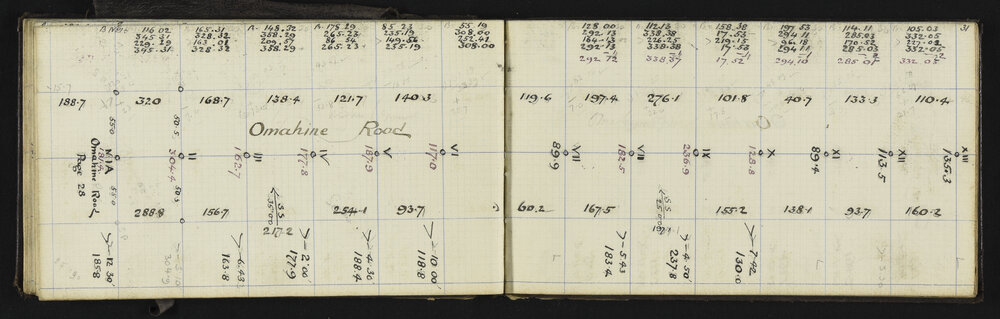 116.02 165.31 A 148.72 A 178.29 85.23 A 55.19 128.00 112.13 158.38 197.53 114.11 105.03 31
345.31 328.32 358.29 265.23 235.19 308.00 292.13 338.38 17.53 294.11 285.03 332.05
229.29 163.01 209.57 86.54 149.56 252.41 164.13 226.25 219.15 96.18 170.52 227.02
345.31 328.32 358.29 265.23 235.19 308.00 292.13 338.38 17.53 294.11 285.03 332.05
292.12 338.37 17.52 294.10 285.01 332.03
188.7 320 168.7 138.4 121.7 140.3 119.6 197.4 276.1 101.8 40.7 133.3 110.4
Omahine Road
550 50.5
MIA II III IV V VI VII VIII IX X XI XII XIII
Omahine Road
Page 28
304.4 162.7 177.8 187.9 117.0 89.9 182.5 236.9 128.8 89.4 113.5 135.3
550 50.5
288.8 156.7 254.1 93.7 60.2 167.5 155.2 138.1 93.7 160.2
S.S 35.00
217.2
S.S 25.00
12.30' 6.43 2.00' 4.30' 10.00' 5.43 4.50' 7.42
185.8 163.8 177.9 188.4 118.8 183.4 237.8 130.0